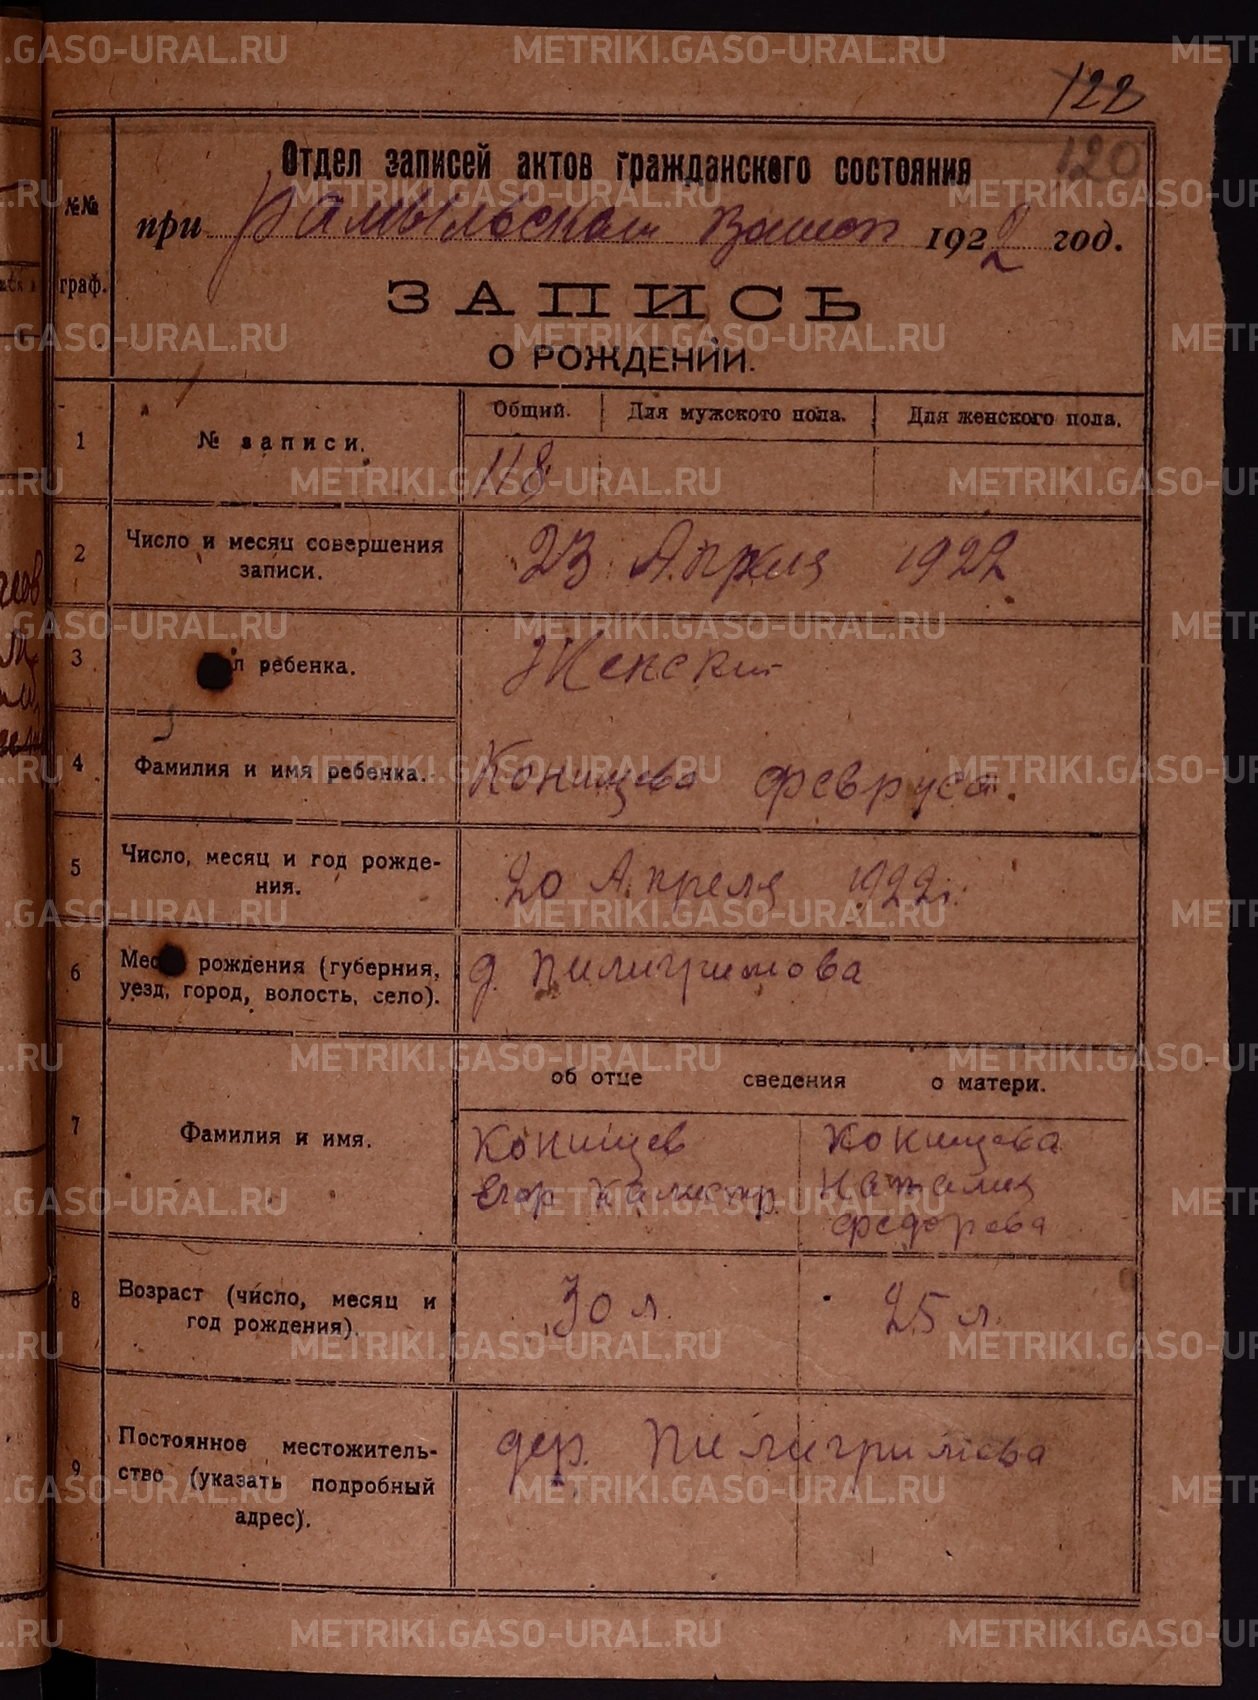 122
120
Отдел записей актов гражданского состояния
при Рамыльском 1922 год.
№№
граф.
ЗАПИСЬ
О РОЖДЕНИИ.
Общий. Для мужского пола. Для женского пола.
1 № записи. 118
2 Число и месяц совершения
записи. 23 Апреля 1922
3 л ребенка. Женский
4 Фамилия и имя ребенка. Конищева Февруса.
5 Число, месяц и год рожде-
ния. 20 Апреля 1922 г.
6 Мес рождения (губерния,
уезд, город, волость, село). д. Пилигримова
об отце сведения о матери.
7 Фамилия и имя.
Конищев Конищева
Егор Калистр. Наталия
Федорова
8 Возраст (число, месяц и
год рождения). 30 л. 25 л.
9 Постоянное местожитель-
ство (указать подробный
адрес). дер. Пилигримова
METRIKI.GASO-URAL.RU